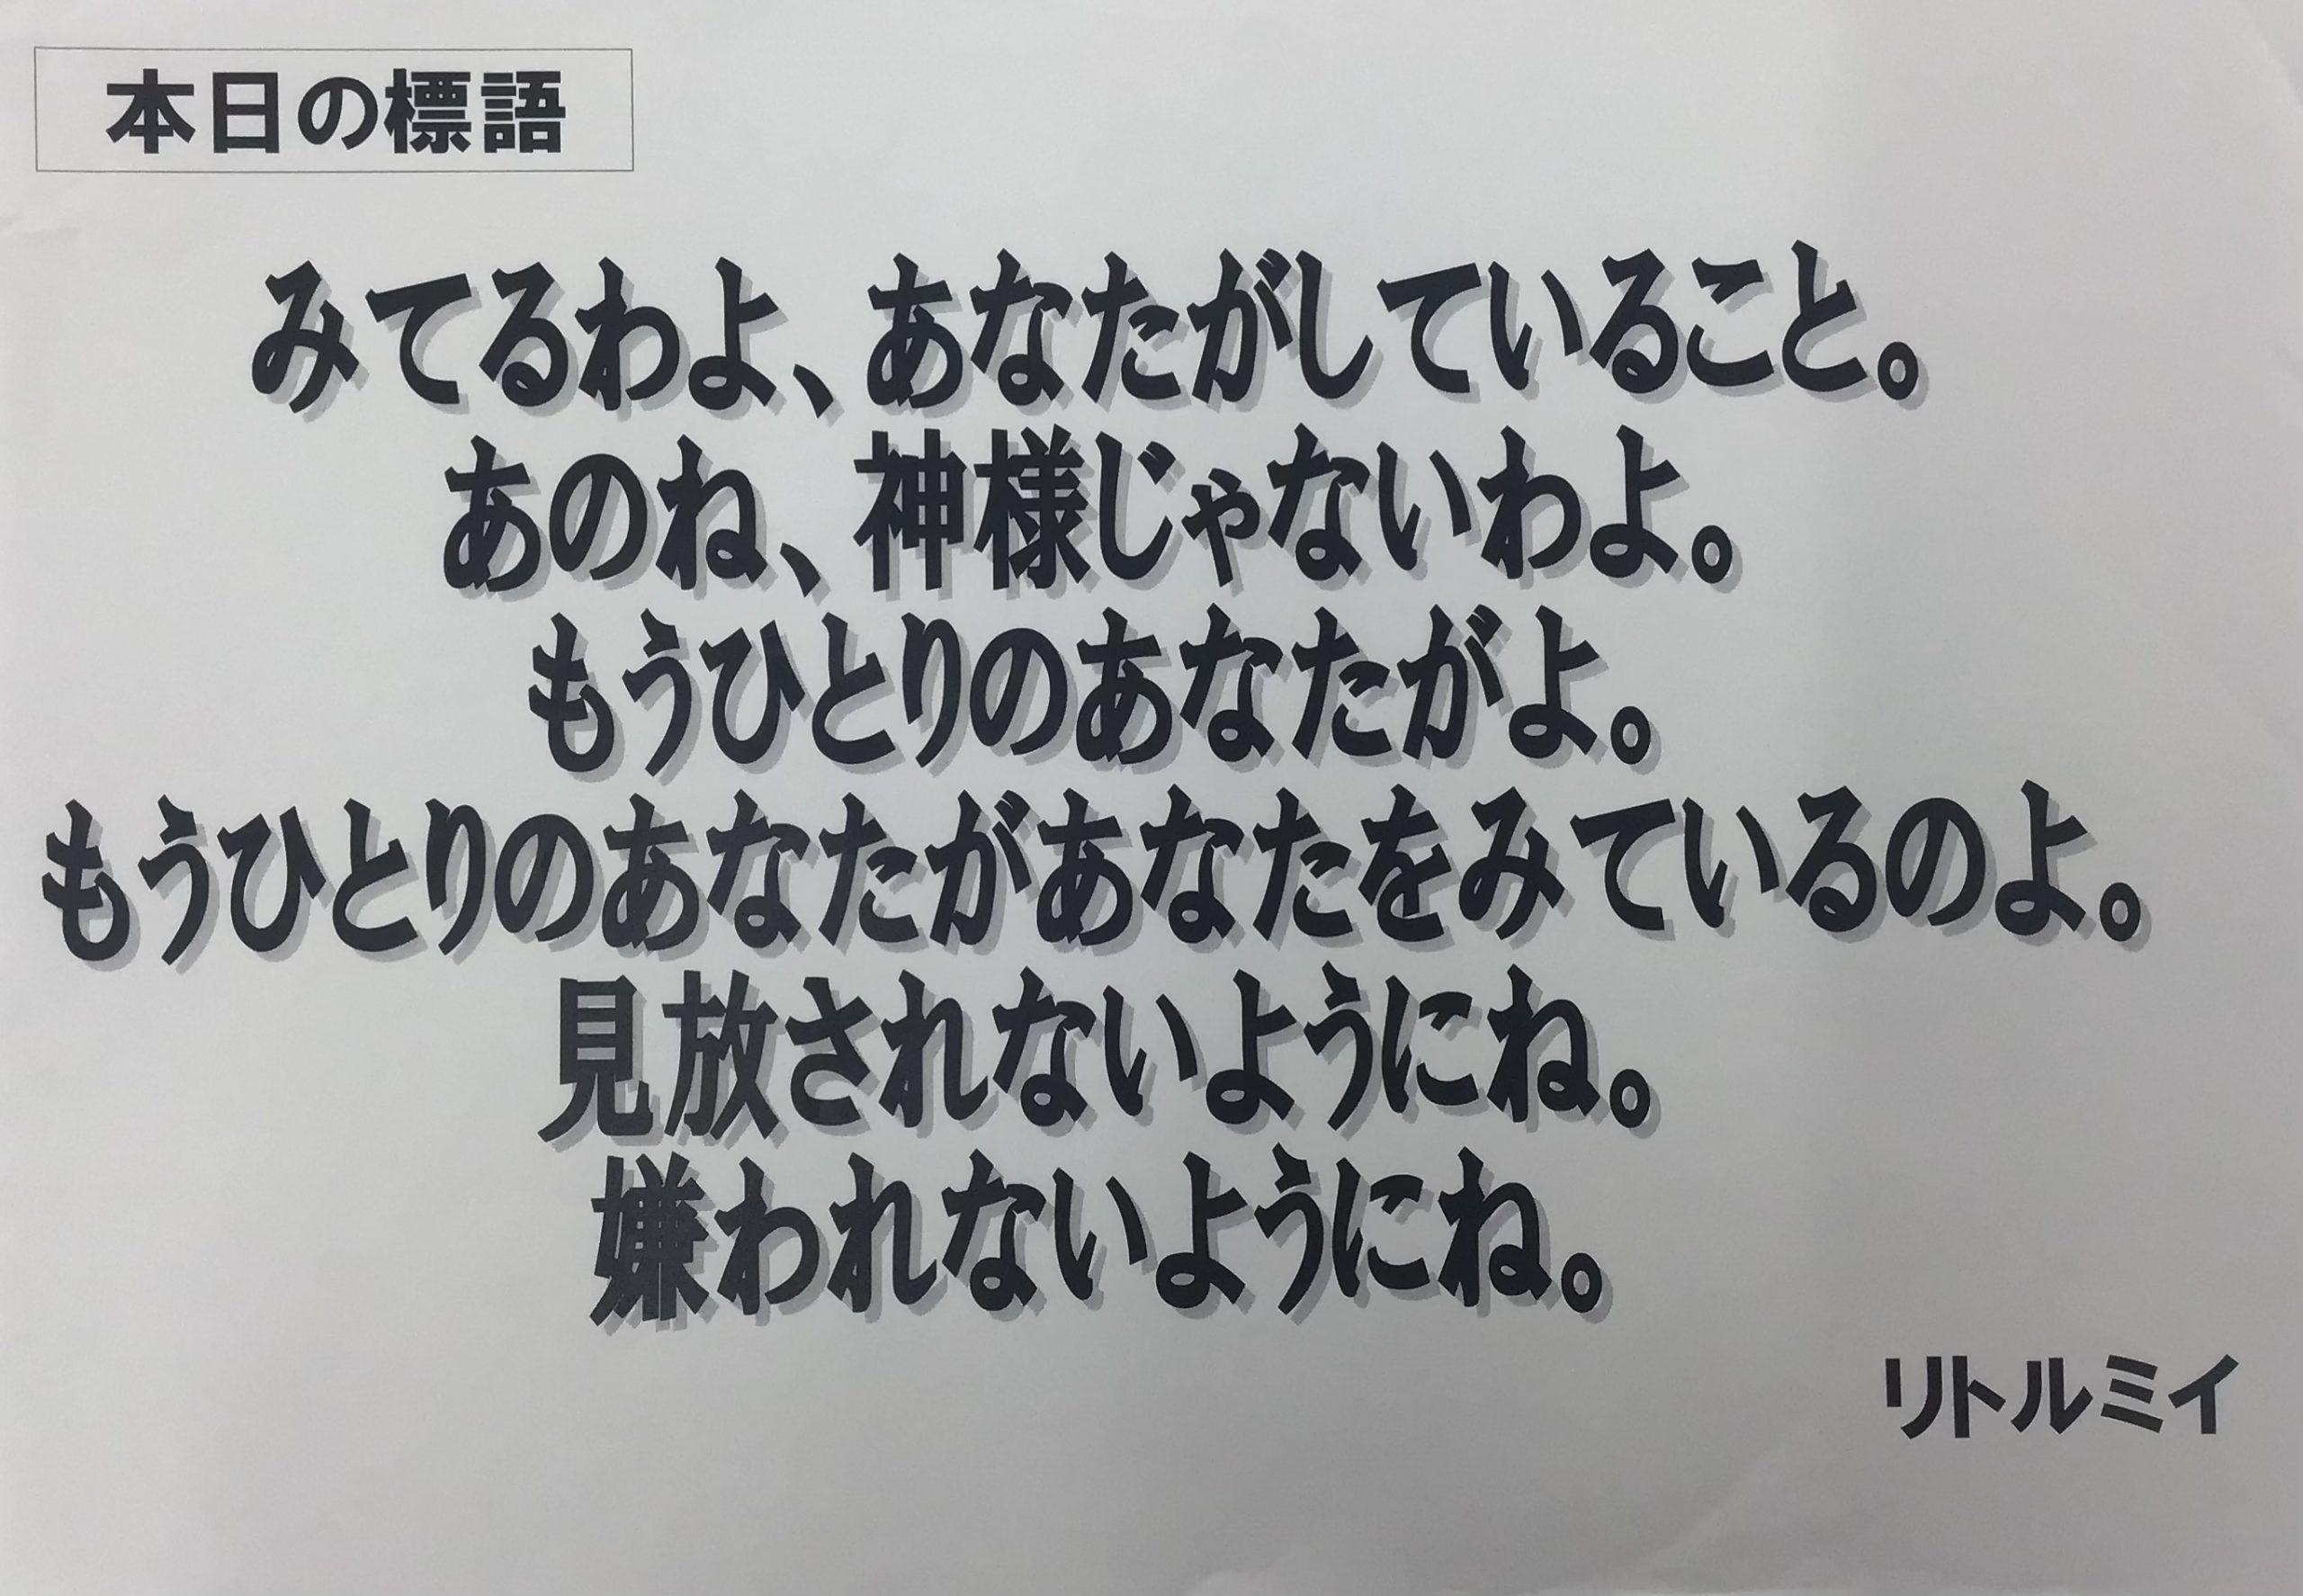 本日の標語
みてるわよ、あなたがしていること。
あのね、神様じゃないわよ。
もうひとりのあなたがよ。
もうひとりのあなたがあなたをみているのよ。
見放されないようにね。
嫌われないようにね。
リトルミイ